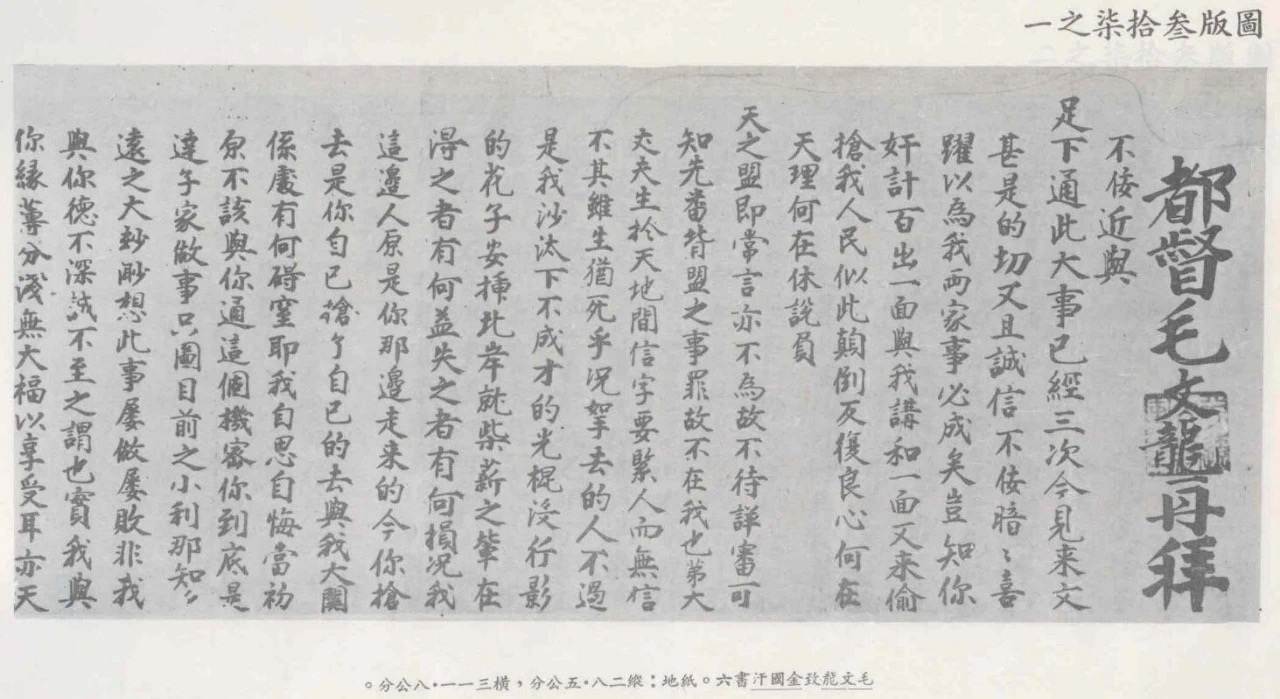 圖版叁拾柒之一
都督毛文龍再拜
不佞近與
足下通此大事已經三次今見来文
甚是的切又且誠信不佞暗〻喜
躍以為我両家事必成矣豈知你
奸計百出一面與我講和一面又来偷
搶我人民似此顛倒反復良心何在
天理何在休説負
天之盟即常言亦不為故不待詳審可
知先番背盟之事罪故不在我也第大
丈夫生於天地間信字要緊人而無信
不其雖生猶死乎况挐去的人不過
是我沙汰下不成才的光棍没行影
的花子安挿此岸就柴薪之輩在
得之者有何益失之者有何損况我
這邊人原是你那邊走来的今你搶
去是你自已搶了自已的去與我大関
係處有何碍窒耶我自思自悔當初
原不該與你通這個機宻你到底是
達子家做事只圖目前之小利那知〻
遠之大玅眇想此事屡做屡敗非我
與你德不深誠不至之謂也實我與
你緣薄分淺無大福以享受耳亦天
毛文龍致金國汗書六。紙地：縱二八·五公分，橫三一一·八公分。